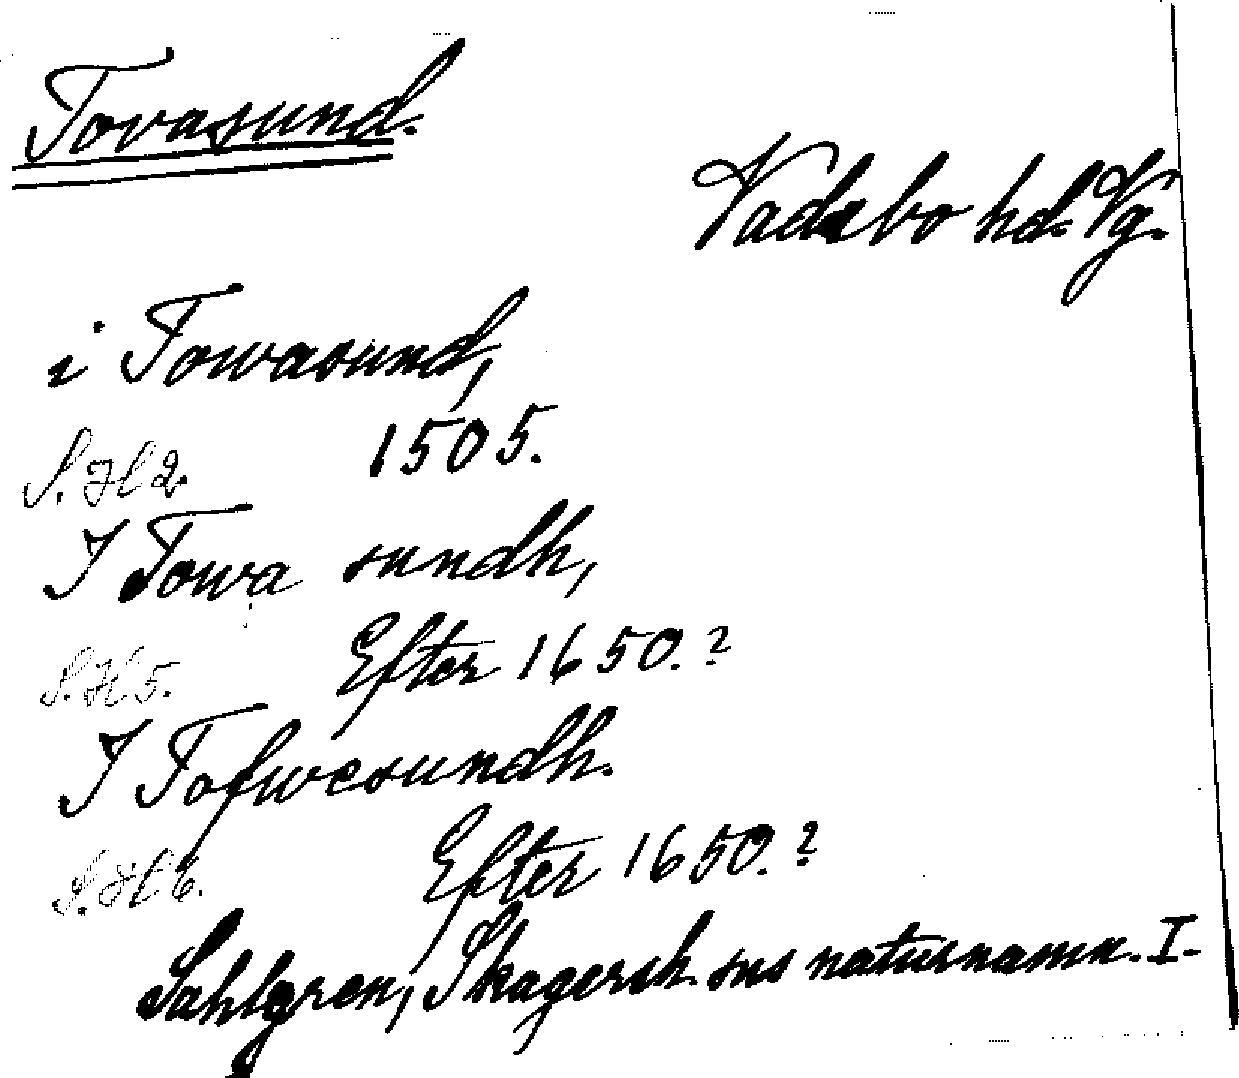 Tovasund.
Vadsbo hd. Vg.
i Towasund,
1505.
S. H 2.
I Towa sundh,
Efter 1650.?
S. H 5.
I Tofwesundh.
Efter 1650.?
S. H 6.
Sahlgren, Skagersh. sns naturnamn. I.